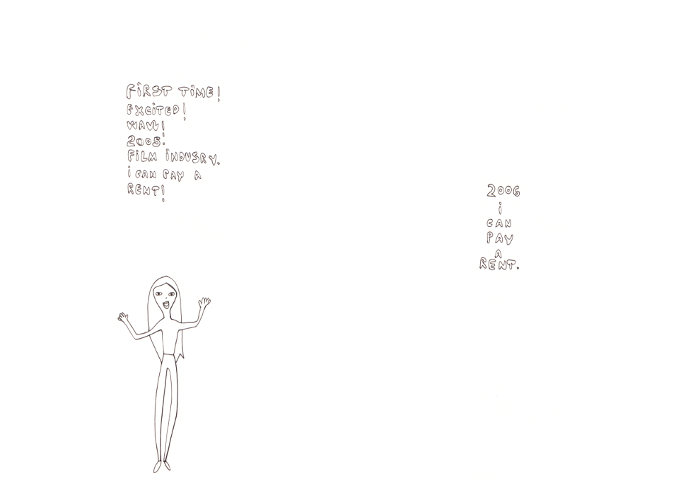 FiRST TiME!
EXCiTED!
WAW!
2005.
FiLM iNDUSRY.
i CAN PAY A
RENT!
2006
i
CAN
PAY
A
RENT.